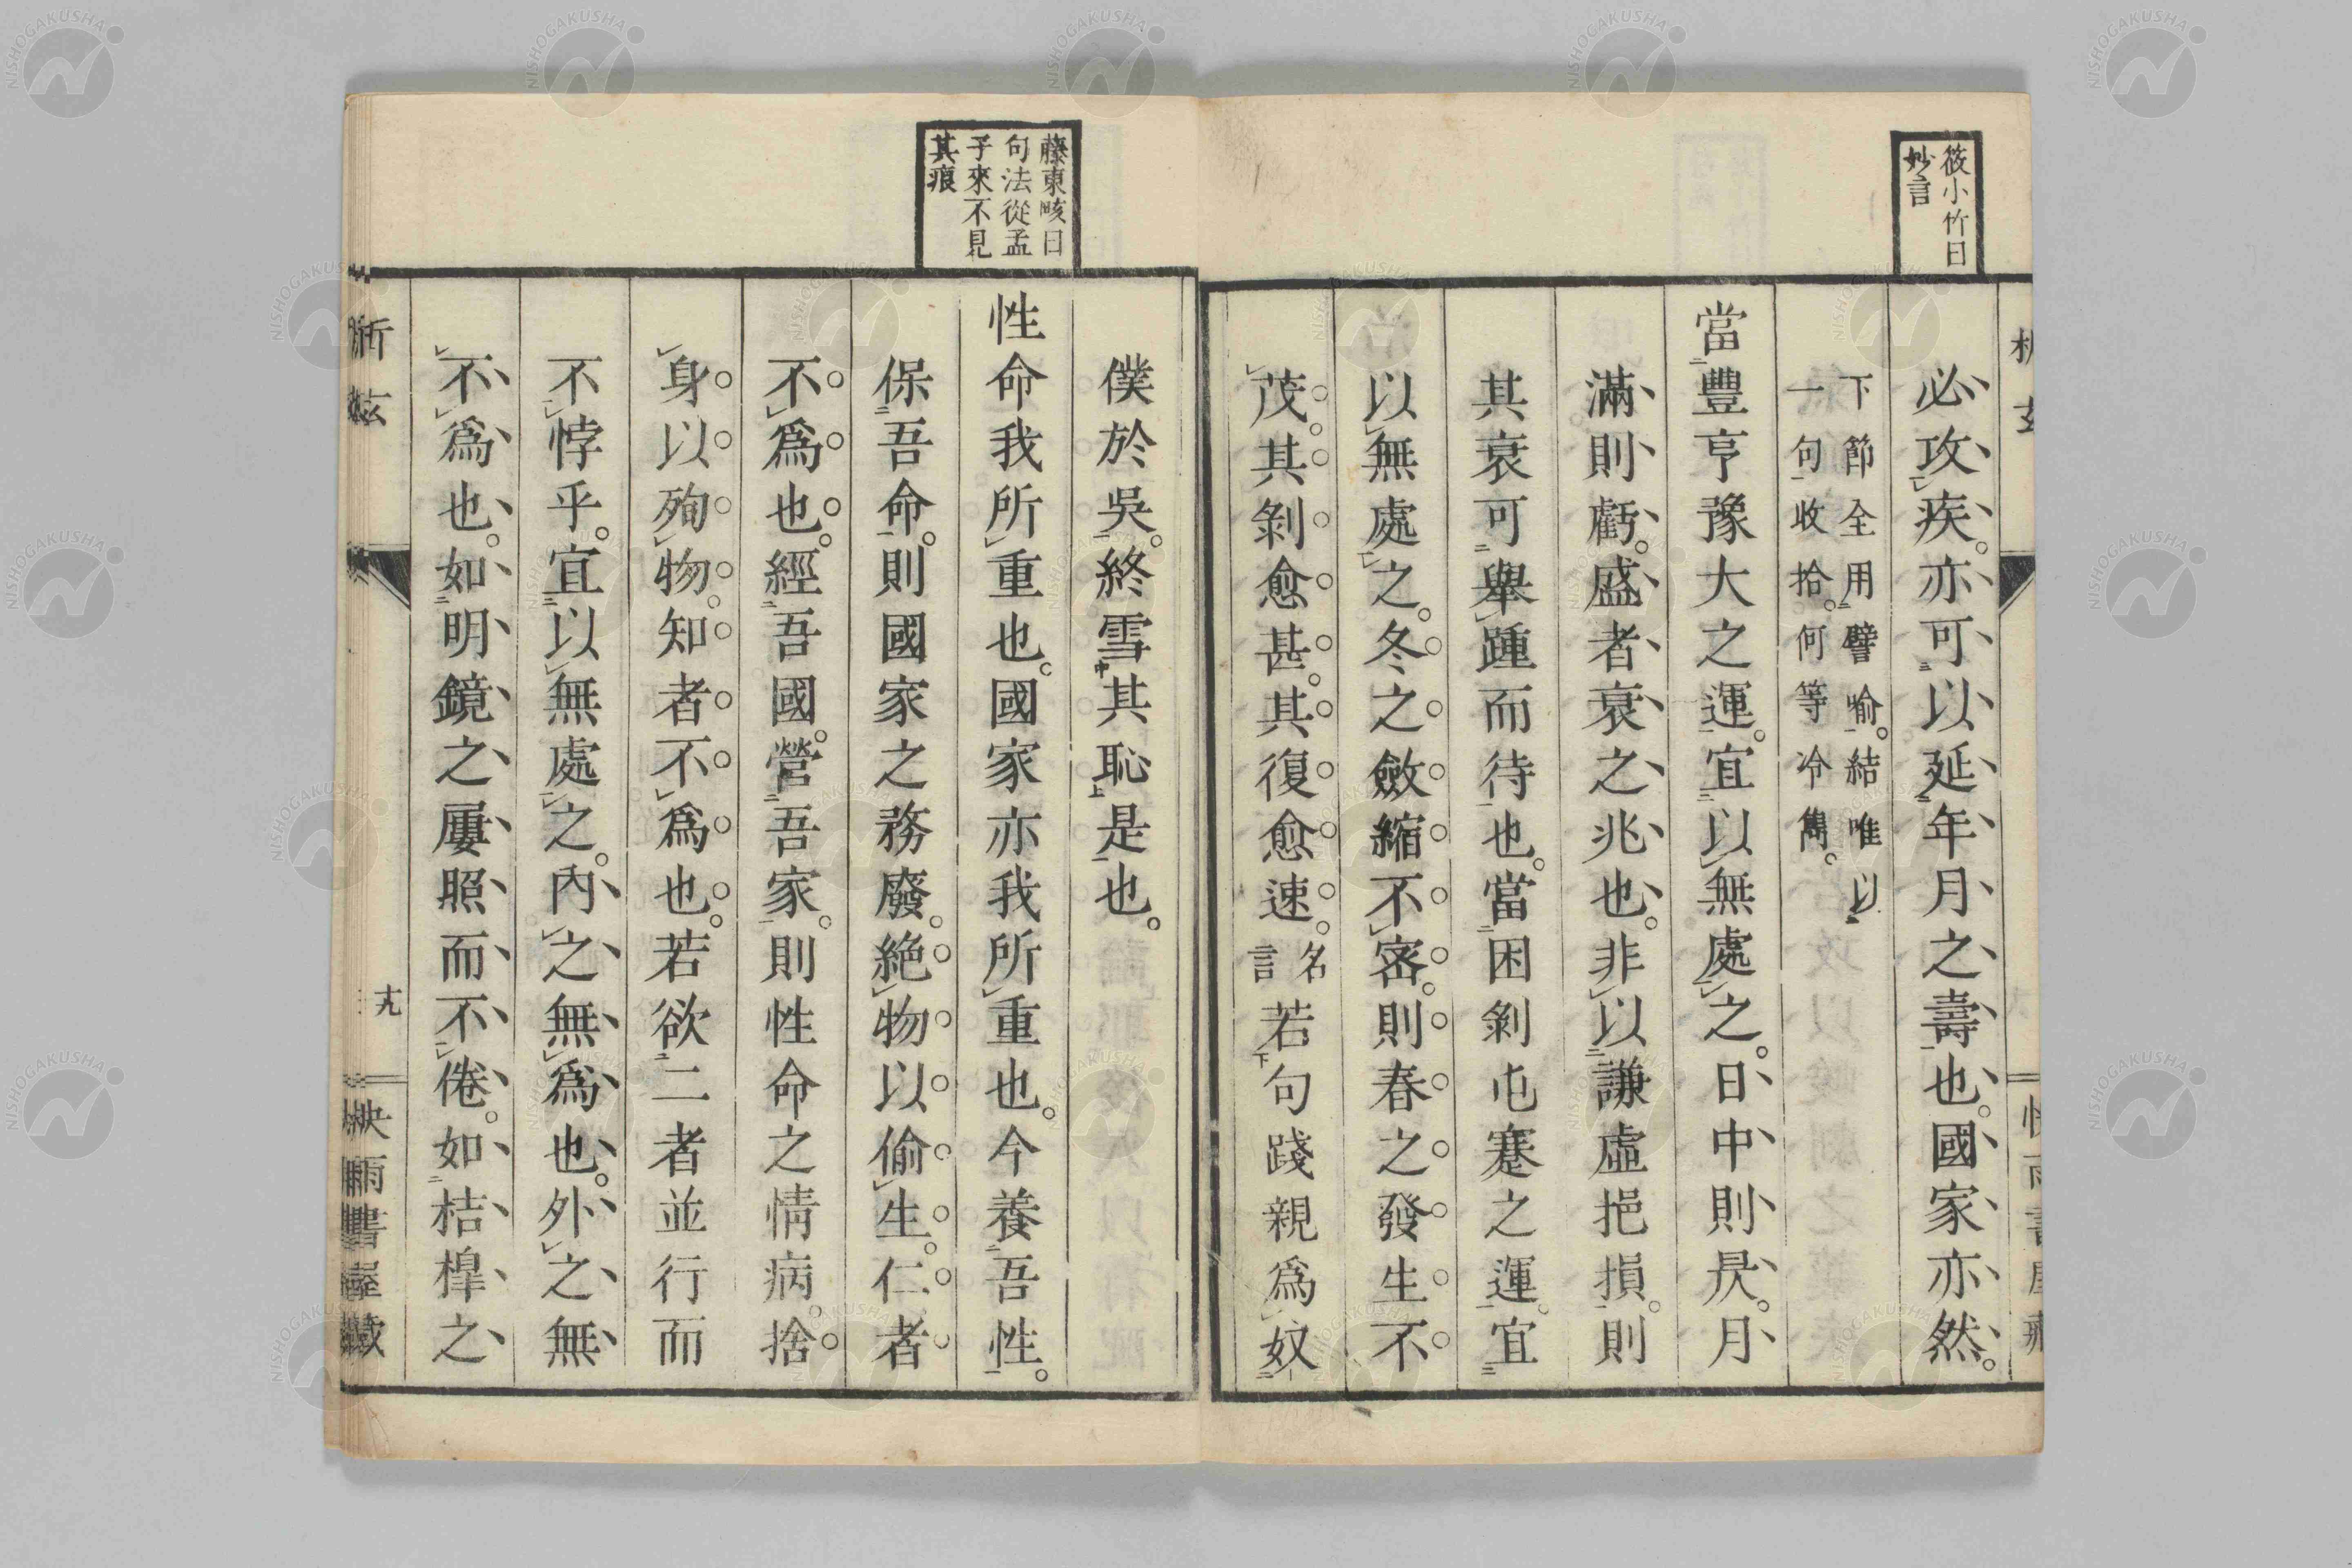 筱小竹曰
妙言
必攻疾。亦可以延年月之壽也。國家亦然。
下節全用譬喻。結唯以
一句收拾。何等冷雋。
當豐亨豫大之運。宜以無處之。日中則昃。月
滿則虧。盛者衰之兆也。非以謙虛挹損。則
其衰可舉踵而待也。當困剝屯蹇之運。宜
以無處之。冬之斂縮不密。則春之發生不
茂。其剝愈甚。其復愈速。名言若句踐親爲奴
藤東畡曰
句法從孟
子來不見
其痕
僕於吳。終雪其恥是也。
性命我所重也。國家亦我所重也。今養吾性。
保吾命。則國家之務廢。絶物以偷生。仁者
不爲也。經吾國。營吾家。則性命之情病。捨
身以殉物。知者不爲也。若欲二者並行而
不悖乎。宜以無處之。內之無爲也。外之無
不爲也。如明鏡之屢照而不倦。如桔槹之
析玄
十九
快雨書屋藏